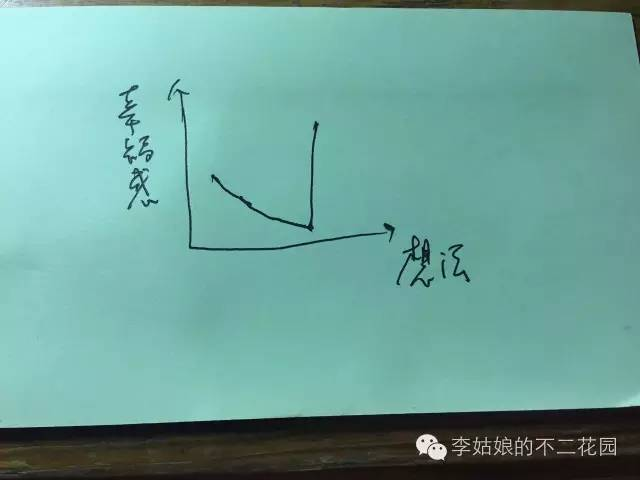 幸福感
想法
李姑娘的不二花园